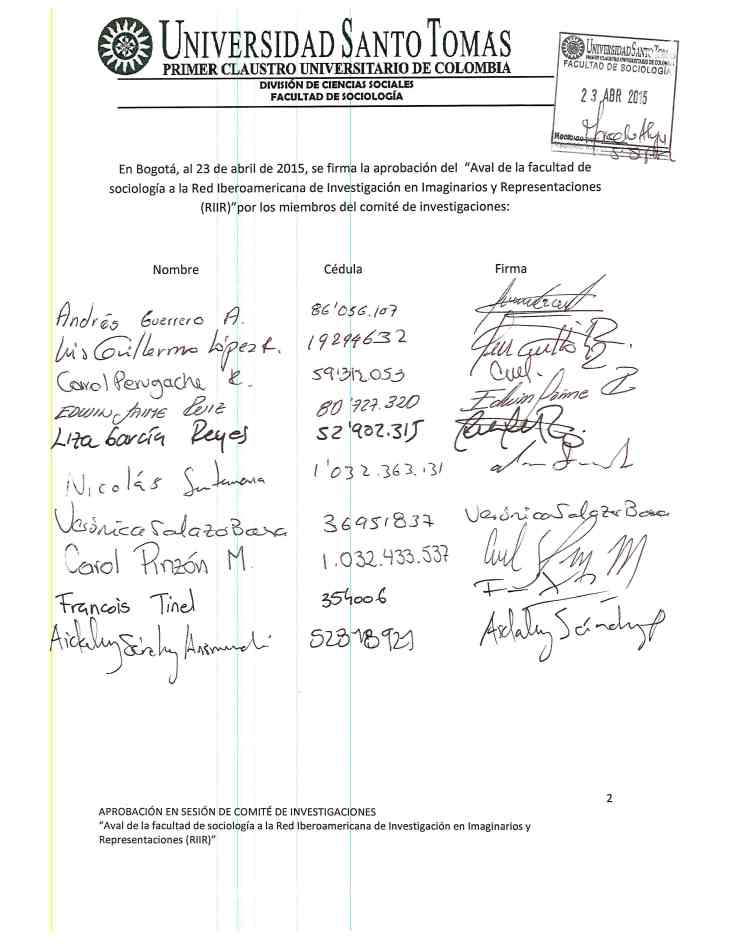 UNIVERSIDAD SANTO TOMAS
PRIMER CLAUSTRO UNIVERSITARIO DE COLOMBIA
DIVISIÓN DE CIENCIAS SOCIALES
FACULTAD DE SOCIOLOGÍA
UNIVERSIDAD SANTO TOMAS
PRIMER CLAUSTRO UNIVERSITARIO DE COLOMBIA
FACULTAD DE SOCIOLOGÍA
23 ABR 2015
En Bogotá, al 23 de abril de 2015, se firma la aprobación del “Aval de la facultad de
sociología a la Red Iberoamericana de Investigación en Imaginarios y Representaciones
(RIIR)”por los miembros del comité de investigaciones:
Nombre Cédula Firma
Andrés Guerrero A. 86'056.107
Luis Guillermo López R. 19294632
Carol Perugache R. 59312053
EDWIN JAIME RUIZ 80'727.320 Edwin Jaime R
Liza García Reyes 52'902.315
Nicolás 1'032.363.131
Verónica Salazar Baena 36951837 Verónica Salazar Baena
Carol Pinzón M. 1.032.433.537
Francois Tinel 354006
Aidaluz Sánchez 52318921 Aidaluz Sánchez
2
APROBACIÓN EN SESIÓN DE COMITÉ DE INVESTIGACIONES
“Aval de la facultad de sociología a la Red Iberoamericana de Investigación en Imaginarios y
Representaciones (RIIR)”